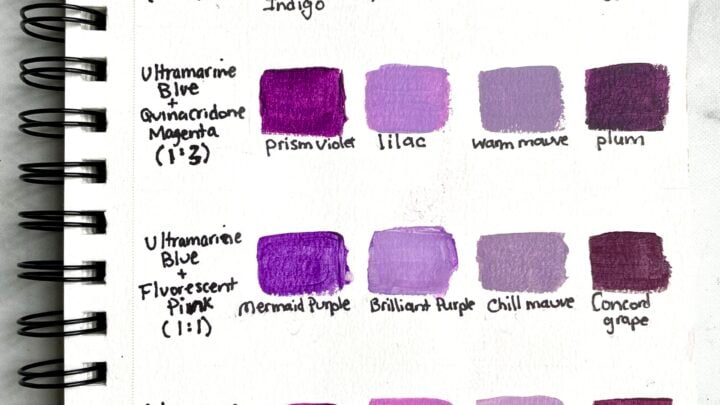 Indigo
Ultramarine
Blue
+
Quinacridone
Magenta
(1:3)
prism violet
lilac
warm mauve
plum
Ultramarine
Blue
+
Fluorescent
Pink
(1:1)
Mermaid Purple
Brilliant Purple
Chill mauve
Concord
grape